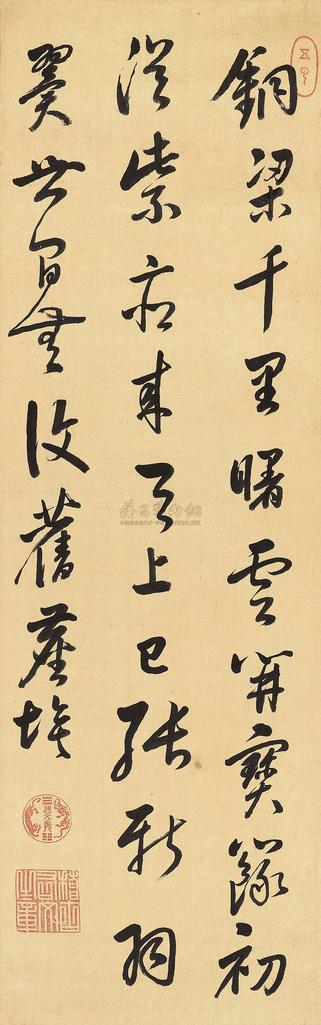 銅梁千里曙雲開寶籙初
從紫府來天上已張新羽
翼世間無復舊塵埃